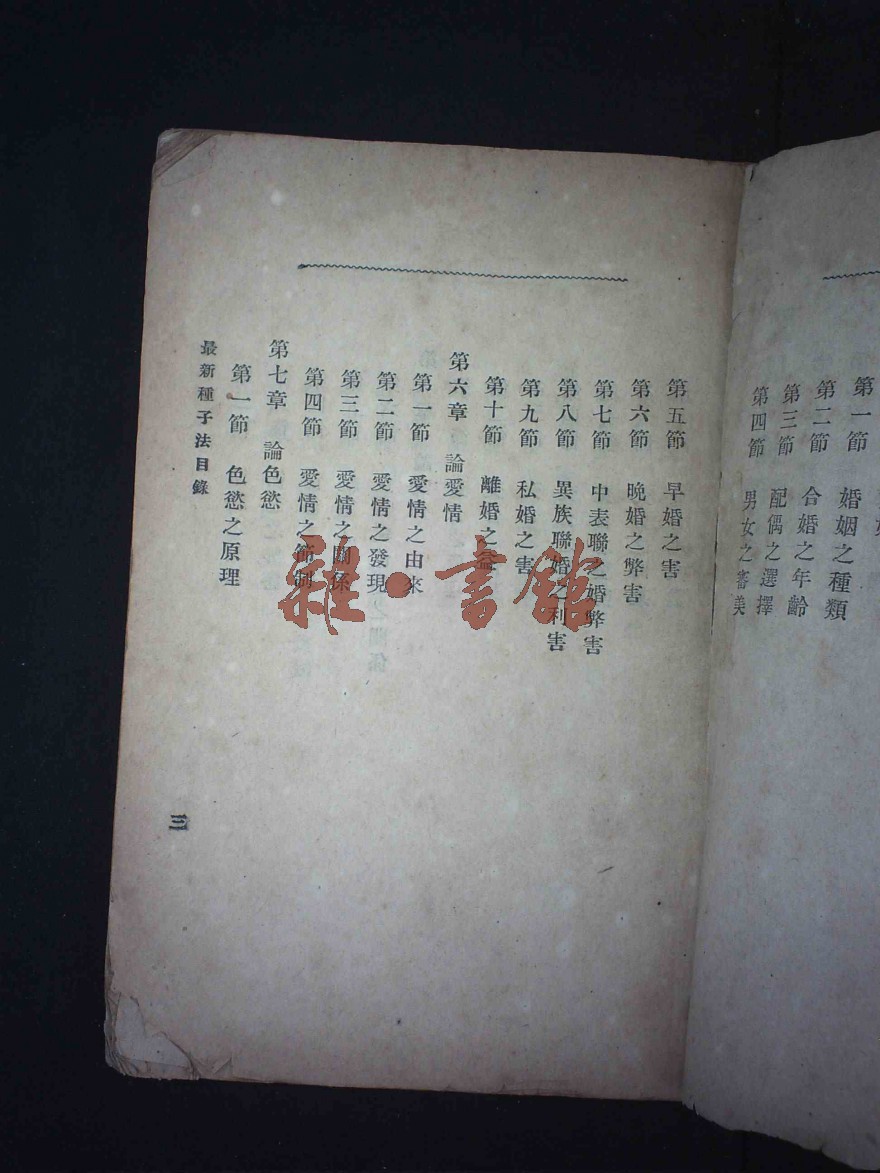 第一節 婚姻之種類
第二節 合婚之年齡
第三節 配偶之選擇
第四節 男女之審美
第五節 早婚之害
第六節 晚婚之弊害
第七節 中表聯之婚弊害
第八節 異族聯婚之利害
第九節 私婚之害
第十節 離婚之益
第六章 論愛情
第一節 愛情之由來
第二節 愛情之發現
第三節 愛情之關係
第四節 愛情之節制
第七章 論色慾
第一節 色慾之原理
最新種子法目錄
三
雜·書館